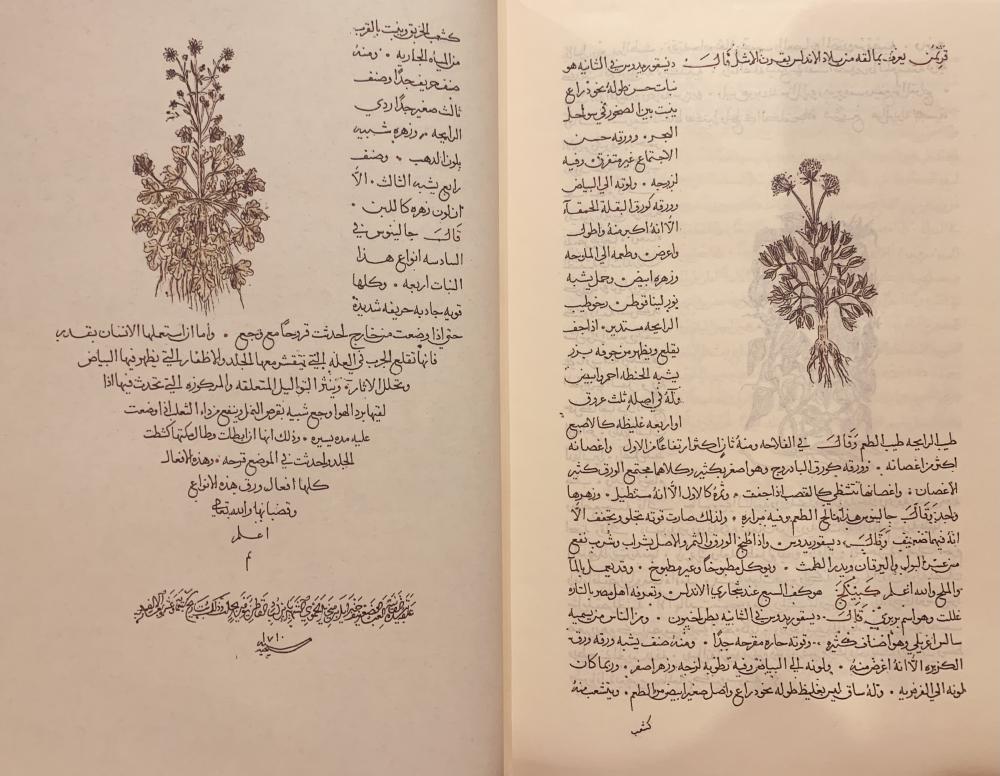 قريثمن يعرف بمالقه من بلاد الاندلس بقرن الاشل قال ديسقوريدوس في الثانيه هو
نبات حسن طوله نحو ذراع
ينبت بين الصخور في سواحل
البحر وورقه حسن
الاجتماع غير متفرق وفيه
لزوجه ولونه الي البياض
وورقه كورق البقلة الحمقآء
الا انه اكبر منه واطول
واعرض وطعمه الي الملوحه
وزهره ابيض وحمل يشبه
بزر لينابوطس رخو طيب
الرايحه مستدير اذا جف
يقلع ويظهر من جوفه بزر
يشبه الحنطه احمر وابيض
وله في اصله ثلث عروق
او اربعه غليظه كالاصبع
طيب الرايحه طيب الطعم وقال في الفلاحه ومنه ثان اكثر ارتفاعا من الاول واغصانه
اكثر من اغصانه وورقه كورق البادروج وهو اصغر بكثير وكلاهما مجتمع الورق كثير
الاغصان واغصانها تتشظي كالقصب اذا جفت وثمره كالاول الا انه مستطيل وزهرها
واحد وقال جالينوس هذا مالح الطعم وفيه مراره ولذلك صارت قوته تجلو وتجفف الا
انه فيهما ضعيف وقال ديسقوريدوس واذا طبخ الورق والثمر والاصل بشراب وشرب نفع
من عسر البول واليرقان ويدر الطمث ويوكل مطبوخا وغير مطبوخ وقد يعمل بالمآ
والملح والله اعلم كبيكج هو كف السبع عند شجاري الاندلس وتعرفه اهل مصر بالتازه
غللت وهو اسم بربري قال ديسقوريدوس في الثانيه بطراخيون ومن الناس من يسميه
سالس اغريلي وهو اصناف كثيره وقوته حاره مقرحه جدا ومنه صنف يشبه ورقه ورق
الكزبره الا انه اعرض منه ولونه الي البياض وفيه رطوبه لزجه وزهر اصفر وربما كان
لونه الي الفرفيريه وله ساق ليس بغليظ طوله نحو ذراع واصل صغير ابيض مر الطعم ويتشعب منه
كشعب
كشعب الخربق وينبت بالقرب
من المياه الجاريه ومنه
صنف حريف جدا وصنف
ثالث صغير جدا ردي
الرايحه وزهره شبيه
بلون الذهب وصنف
رابع يشبه الثالث الا
ان لون زهره كاللبن
قال جالينوس في
السادسه انواع هذا
النبات اربعه وكلها
قويه حاده حريفه شديدة
حتي اذا وضعت من خارج احدثت قروحا مع وجع واما ان استعملها الانسان بقدر
فانها تقلع الجرب في العله التي يتقشر معها الجلد والاظفار التي يظهر فيها البياض
وتحلل الاثار وينثر الثواليل المتعلقه والمركوزه التي تحدث فيها اذا
لقيها برد الهوا وجع شبيه بقرص النمل وينفع من داء الثعلب اذا وضعت
عليه مده يسيره وذلك انها ان ابطات وطال مكثها كشطت
الجلد واحدثت في الموضع قرحه وهذه الافعال
كلها افعال ورق هذه الانواع
وقضبانها والله تعالي
اعلم
م